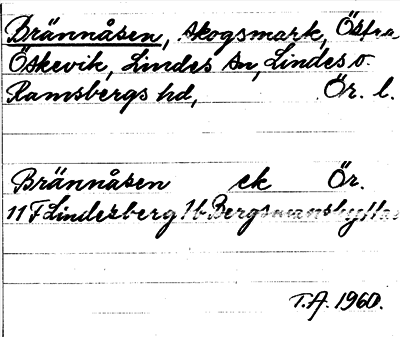 Brännåsen, skogsmark, Östra
Öskevik, Lindes sn, Lindes o.
Ramsbergs hd, Ör. l.
Brännåsen ek Ör.
11 F Lindesberg 1b Bergsmanshyttan
T.A. 1960.